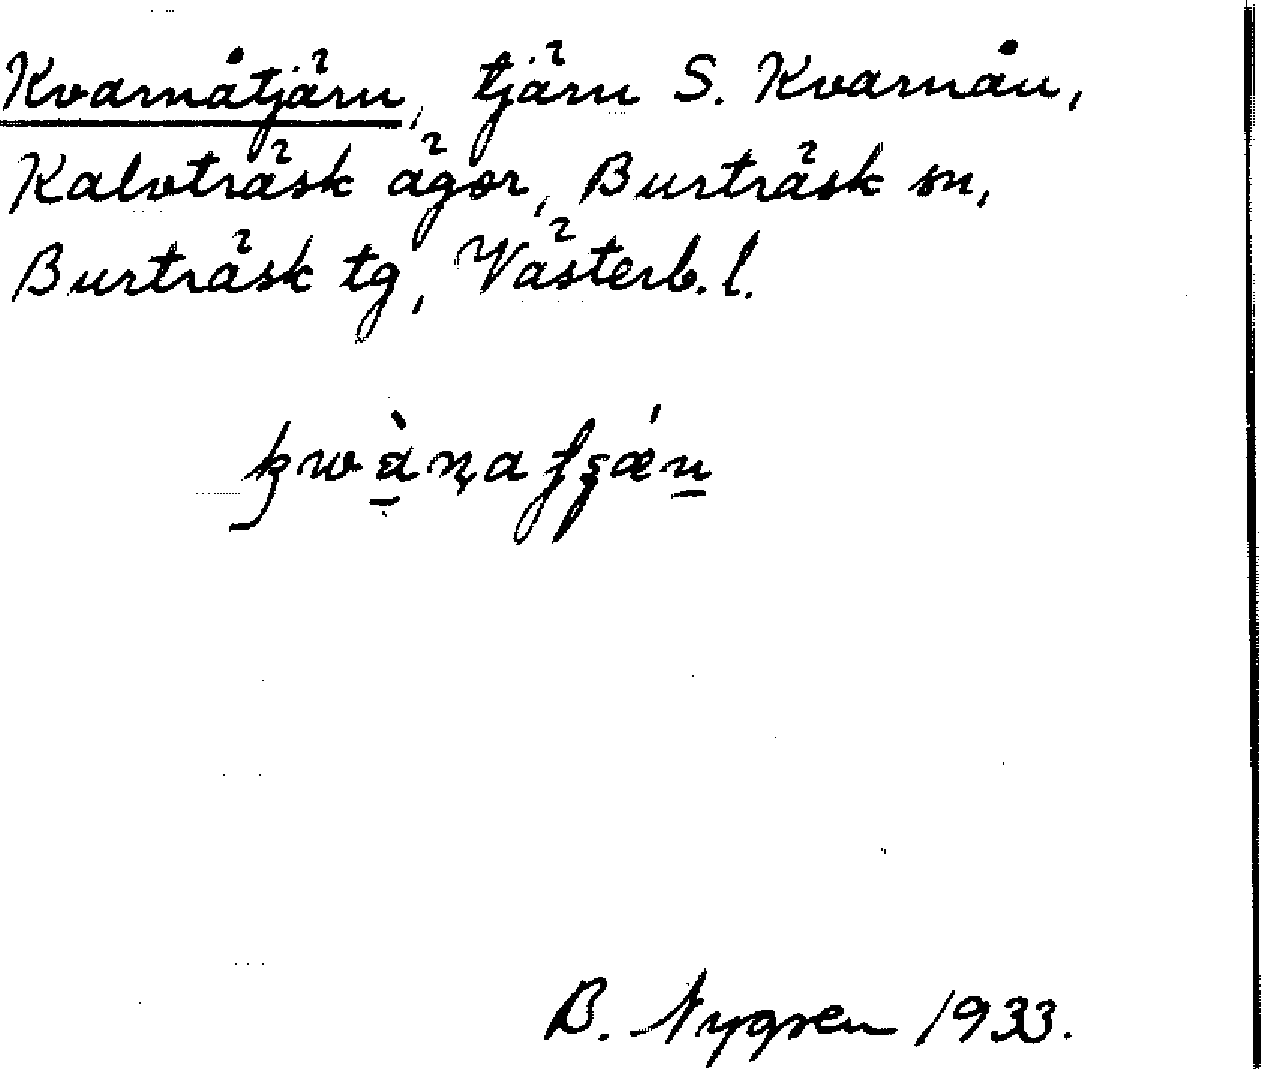 Kvarnåtjärn, tjärn S. Kvarnån,
Kalvträsk ägor, Burträsk sn,
Burträsk tg, Västerb. l.
B. Nygren 1933.